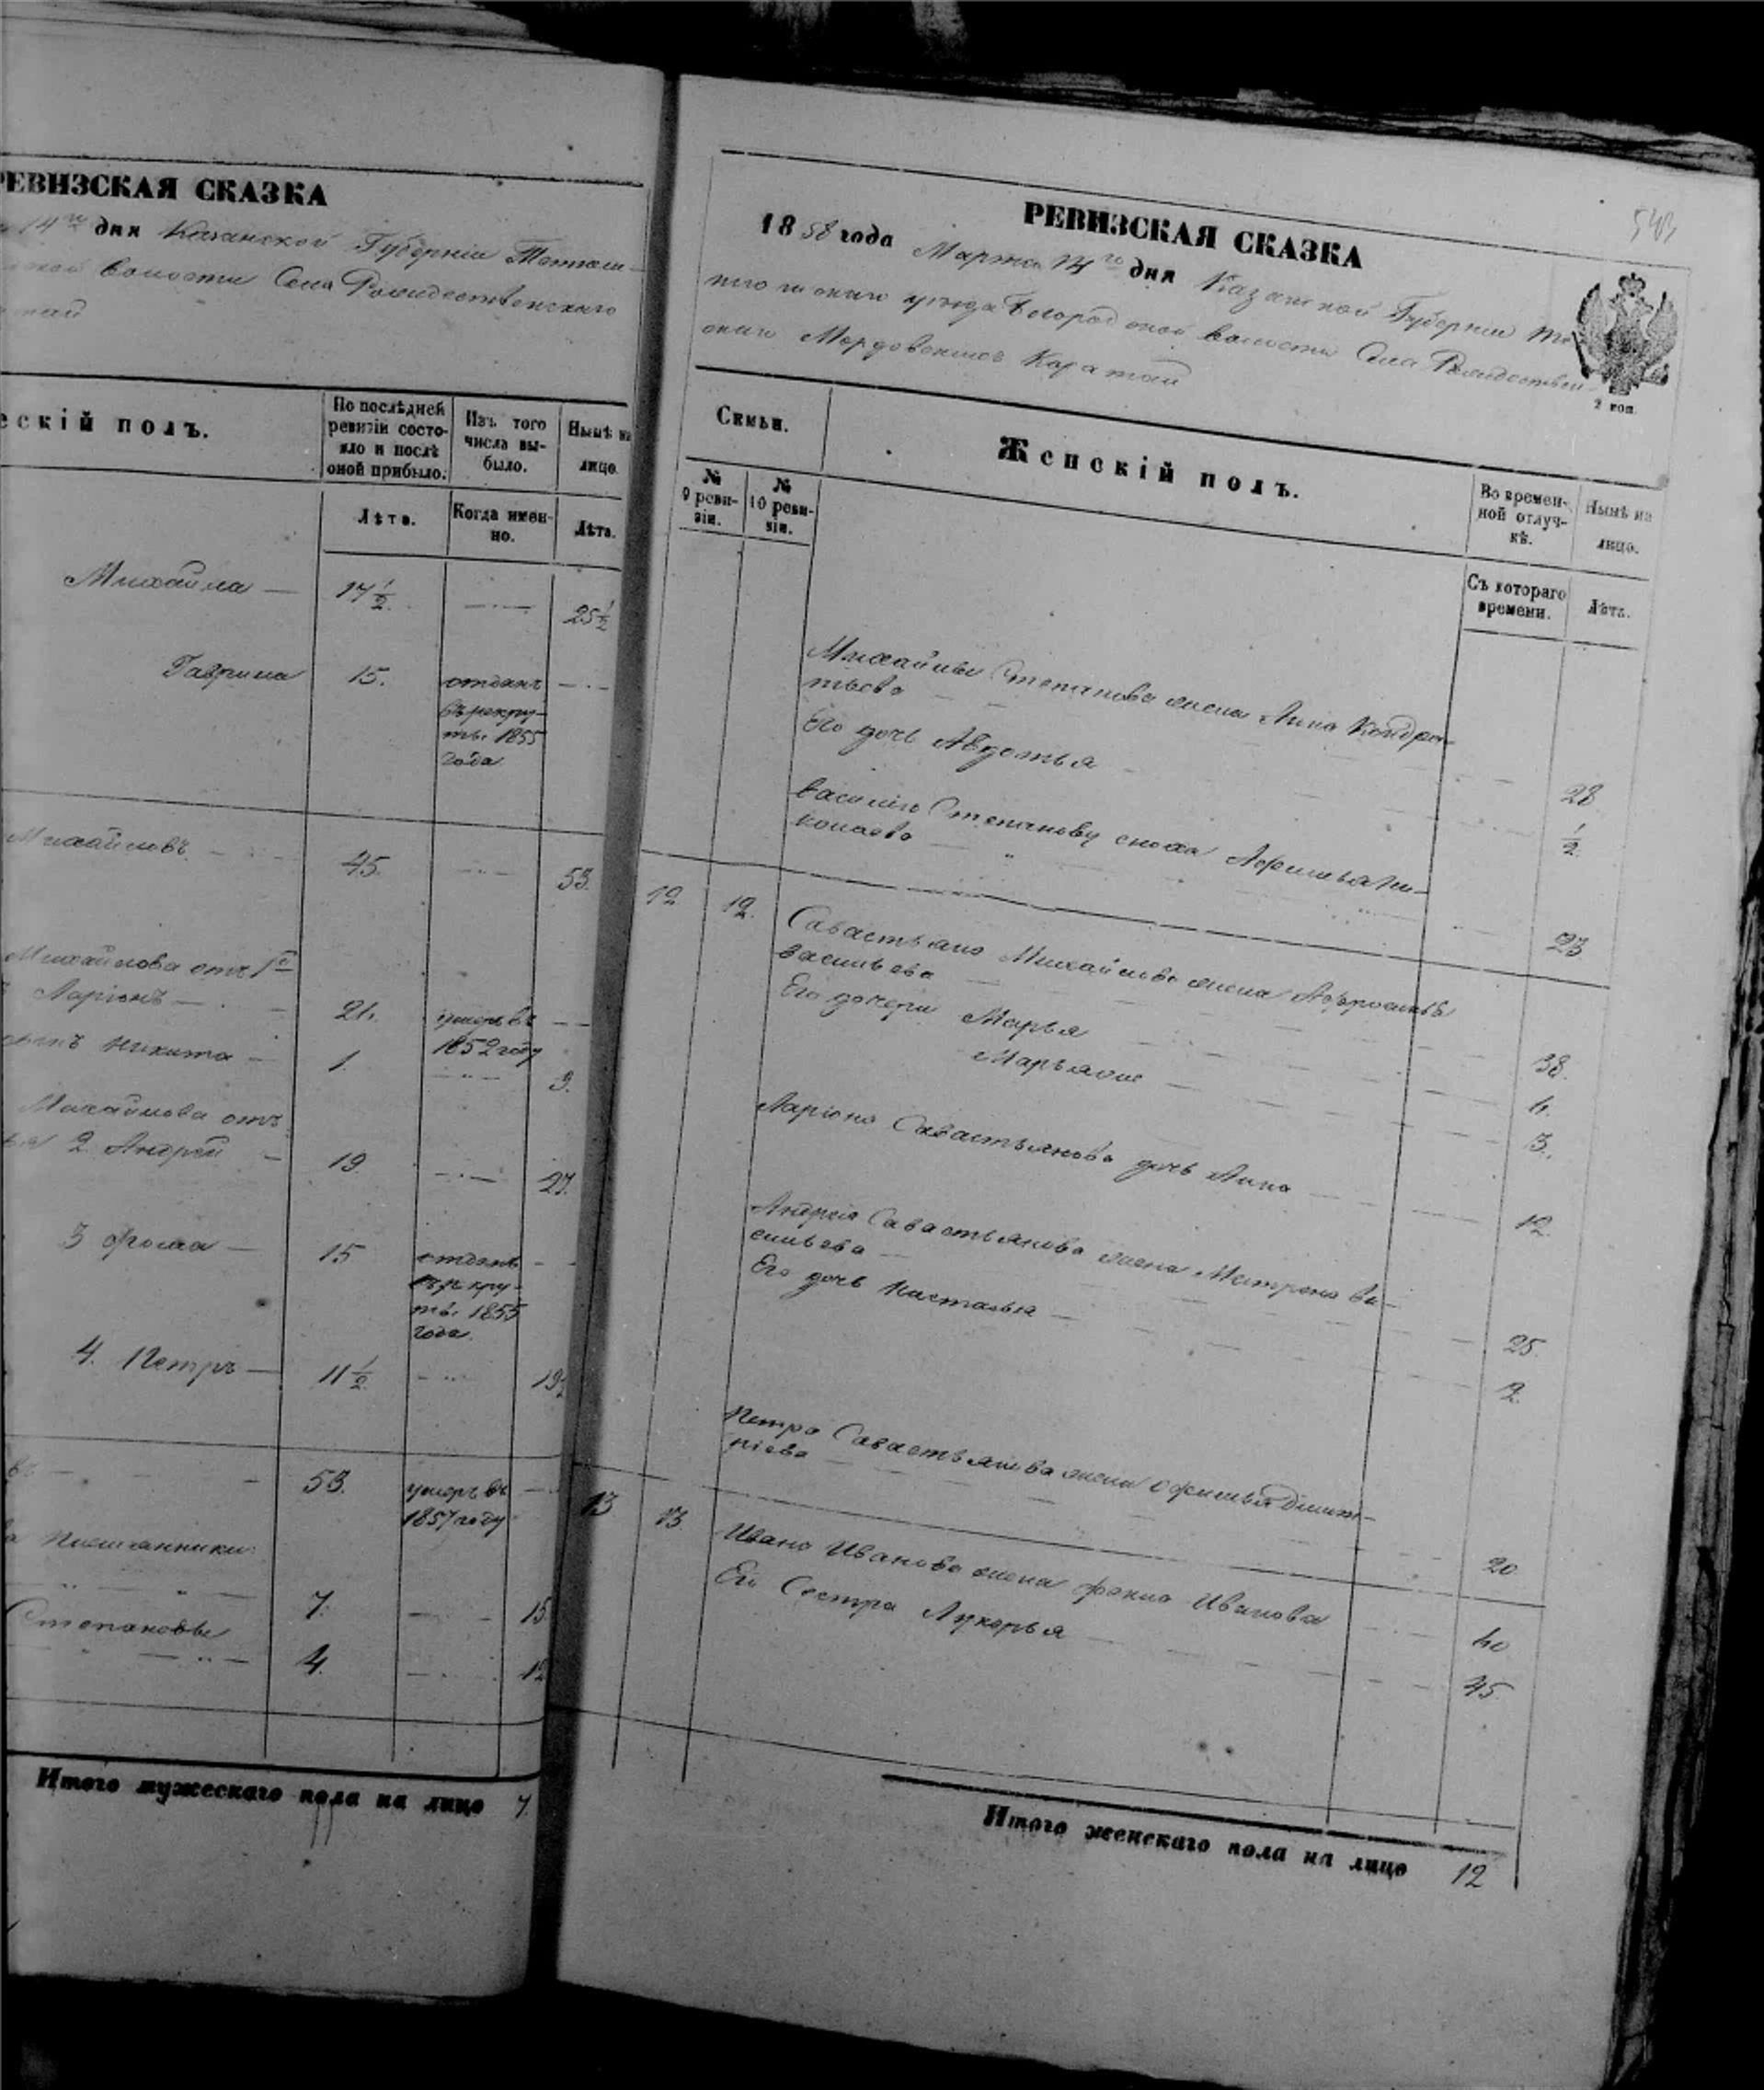 РЕВИЗСКАЯ СКАЗКА
14го дня Казанской Губерніи Тетюш-
волости Села Рождественскаго
ескій полъ.
По послѣдней ревизіи состо-
яло и послѣ оной прибыло.
Изъ того числа вы-
было.
Нынѣ на лицо.
Лѣта.
Когда имен-
но.
Лѣта.
Михайла — 17½ — 25½
Гаврила 15. отданъ
въ рекру-
ты 1855
года
Михайловъ — 45. — 53.
Михайлова отъ 1й
Ларіонъ — 21. умеръ въ
1852 году
сынъ Никита — 1. — 9.
Михайлова отъ
2 Андрей — 19 — 27.
3 Фома — 15 отданъ
въ рекру-
ты 1855
года.
4. Петръ — 11½ — 19½
въ — 53. умеръ въ
1857 году
Племянники
7. — 15
Степановы
4. — 12
Итого мужескаго пола на лицо 7
543
РЕВИЗСКАЯ СКАЗКА
1858 года Марта 14го дня Казанской Губерніи Те-
уѣзда волости Села Рождествен-
скаго Мордовскихъ Каратай
2 коп.
Семьи.
Женскій полъ.
Во времен-
ной отлуч-
кѣ.
Нынѣ на
лицо.
№
9 реви-
зіи.
№
10 реви-
зіи.
Съ котораго
времени.
Лѣта.
Михайлы Степанова жена Анна Кондра-
тьева — 28
Его дочь Авдотья — ½
Василію Степанову сноха Афимья Ни-
колаева — 23
12 12. Савастьяна Михайлова жена Афросинья
Васильева — 38.
Его дочери Марья — 4.
Марьяна — 3.
Ларіона Савастьянова дочь Анна — 12.
Андрея Савастьянова жена Матрена Ва-
сильева — 25.
Его дочь Настасья — 2.
Петра Савастьянова жена Офимья Димит-
ріева — 20
13 13 Ивана Иванова жена Фекла Иванова — 40
Его Сестра Лукерья — 45.
Итого женскаго пола на лицо 12